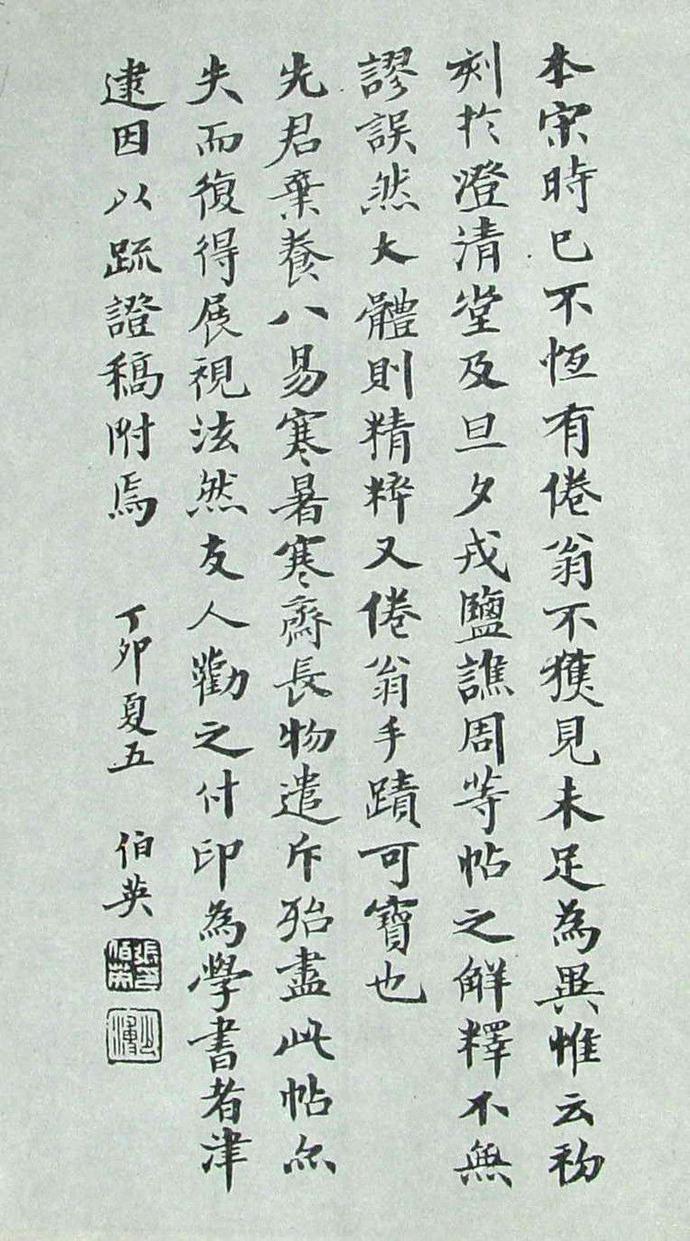 本宋時已不恆有倦翁不獲見未足為異惟云初
刻於澄清堂及旦夕戎鹽譙周等帖之解釋不無
謬誤然大體則精粹又倦翁手蹟可寶也
先君棄養八易寒暑寒齋長物遣斥殆盡此帖亦
失而復得展視泫然友人勸之付印為學書者津
逮因以疏證稿附焉　丁卯夏五　伯英
張伯英